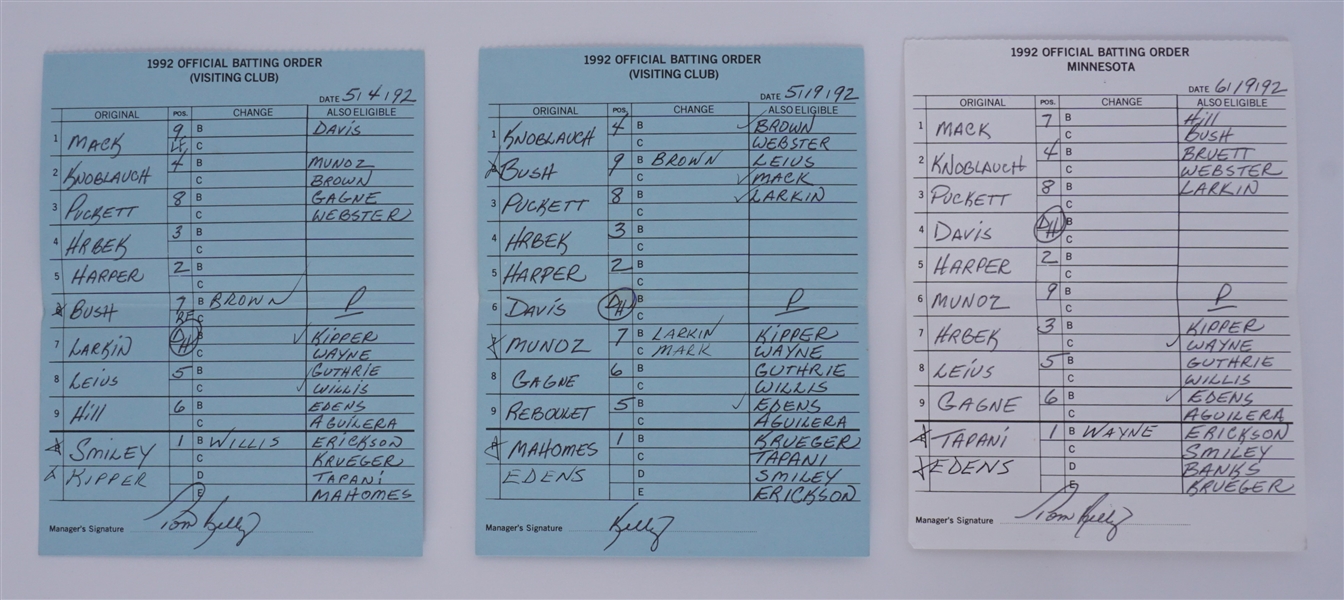 1992 OFFICIAL BATTING ORDER
(VISITING CLUB)
DATE 5/4/92
ORIGINAL POS. CHANGE ALSO ELIGIBLE
1 MACK 9 B DAVIS
C
2 KNOBLAUCH 4 B MUNOZ
C BROWN
3 PUCKETT 8 B GAGNE
C WEBSTER
4 HRBEK 3 B
C
5 HARPER 2 B
C
6 BUSH 7 B BROWN P
C
7 LARKIN DH B KIPPER
C WAYNE
8 LEIUS 5 B GUTHRIE
C WILLIS
9 Hill 6 B EDENS
C AGUILERA
SMILEY 1 B WILLIS ERICKSON
C KRUEGER
KIPPER D TAPANI
E MAHOMES
Manager's Signature Tom Kelly
1992 OFFICIAL BATTING ORDER
(VISITING CLUB)
DATE 5/19/92
ORIGINAL POS. CHANGE ALSO ELIGIBLE
1 KNOBLAUCH 4 B BROWN
C WEBSTER
BUSH 9 B BROWN LEIUS
C MACK
3 PUCKETT 8 B LARKIN
C
4 HRBEK 3 B
C
5 HARPER 2 B
C
6 DAVIS DH B P
C
MUNOZ 7 B LARKIN KIPPER
C MARK WAYNE
8 GAGNE 6 B GUTHRIE
C WILLIS
9 REBOULET 5 B EDENS
C AGUILERA
MAHOMES 1 B KRUEGER
C TAPANI
EDENS D SMILEY
E ERICKSON
Manager's Signature Kelly
1992 OFFICIAL BATTING ORDER
MINNESOTA
DATE 6/19/92
ORIGINAL POS. CHANGE ALSO ELIGIBLE
1 MACK 7 B Hill
C BUSH
2 KNOBLAUCH 4 B BRUETT
C WEBSTER
3 PUCKETT 8 B LARKIN
C
4 DAVIS DH B
C
5 HARPER 2 B
C
6 MUNOZ 9 B P
C
7 HRBEK 3 B KIPPER
C WAYNE
8 LEIUS 5 B GUTHRIE
C WILLIS
9 GAGNE 6 B EDENS
C AGUILERA
TAPANI 1 B WAYNE ERICKSON
C SMILEY
EDENS D BANKS
E KRUEGER
Manager's Signature Tom Kelly